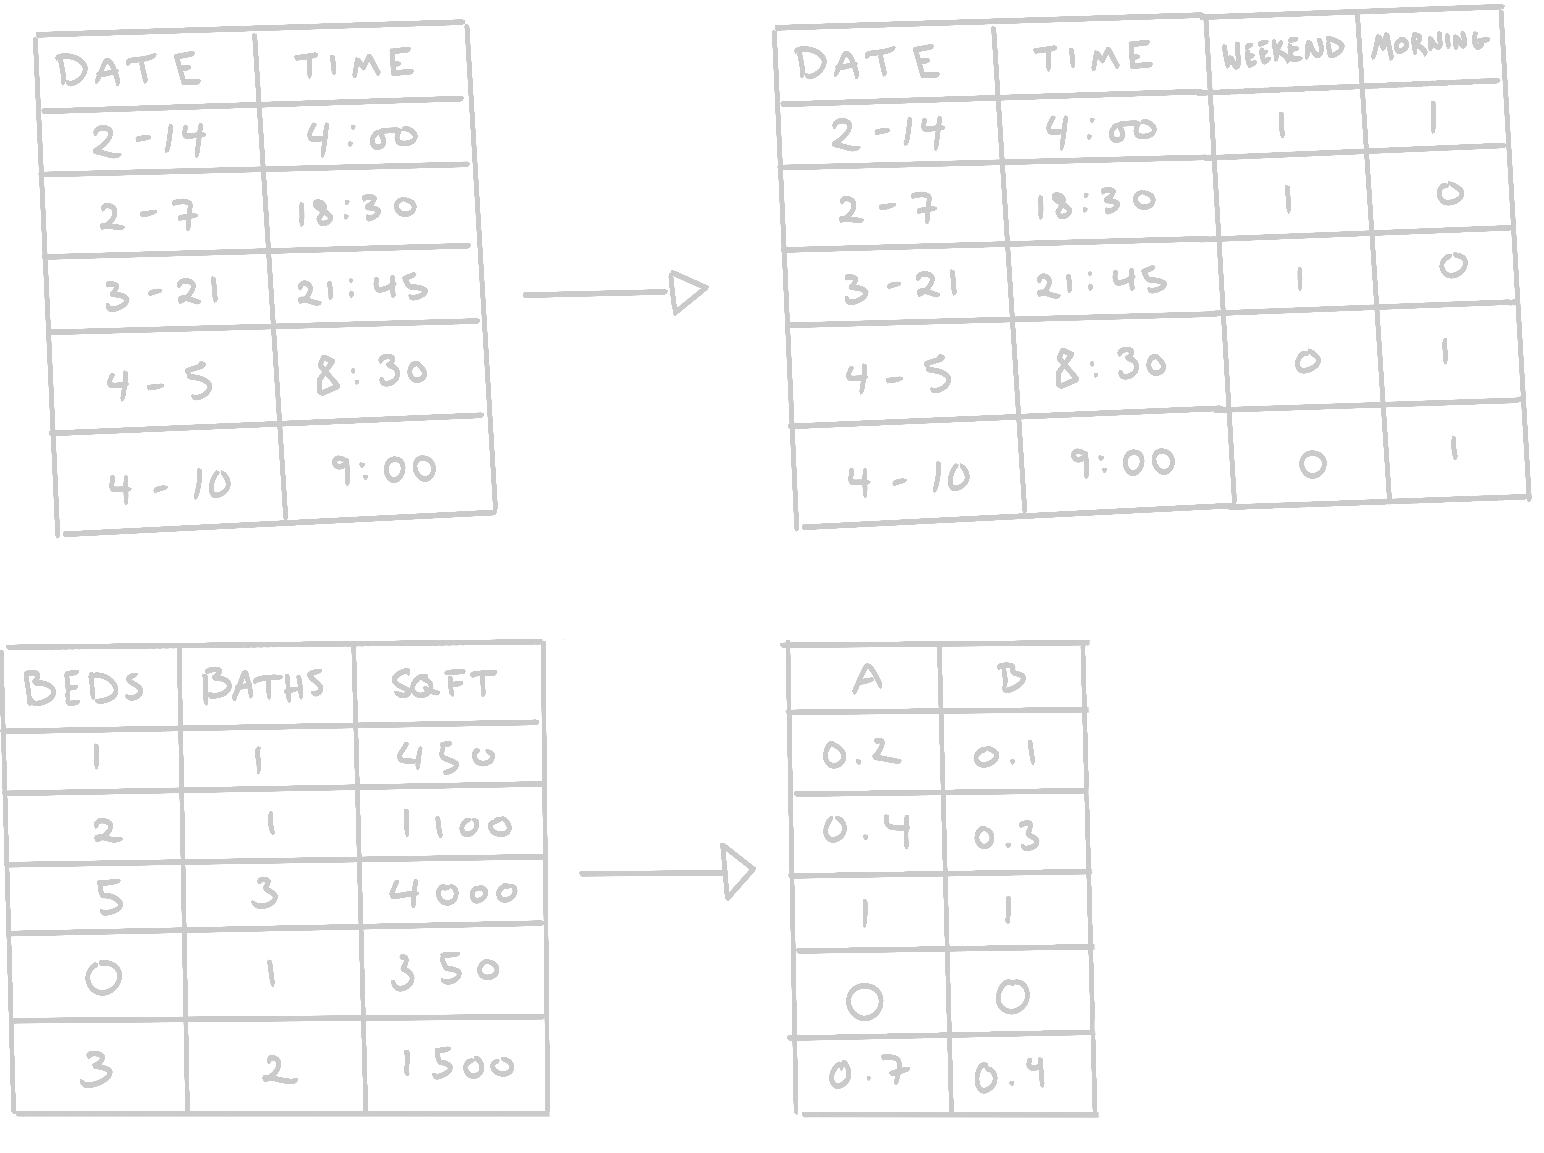 DATE TIME
2-14 4:00
2-7 18:30
3-21 21:45
4-5 8:30
4-10 9:00
DATE TIME WEEKEND MORNING
2-14 4:00 1 1
2-7 18:30 1 0
3-21 21:45 1 0
4-5 8:30 0 1
4-10 9:00 0 1
BEDS BATHS SQFT
1 1 450
2 1 1100
5 3 4000
0 1 350
3 2 1500
A B
0.2 0.1
0.4 0.3
1 1
0 0
0.7 0.4